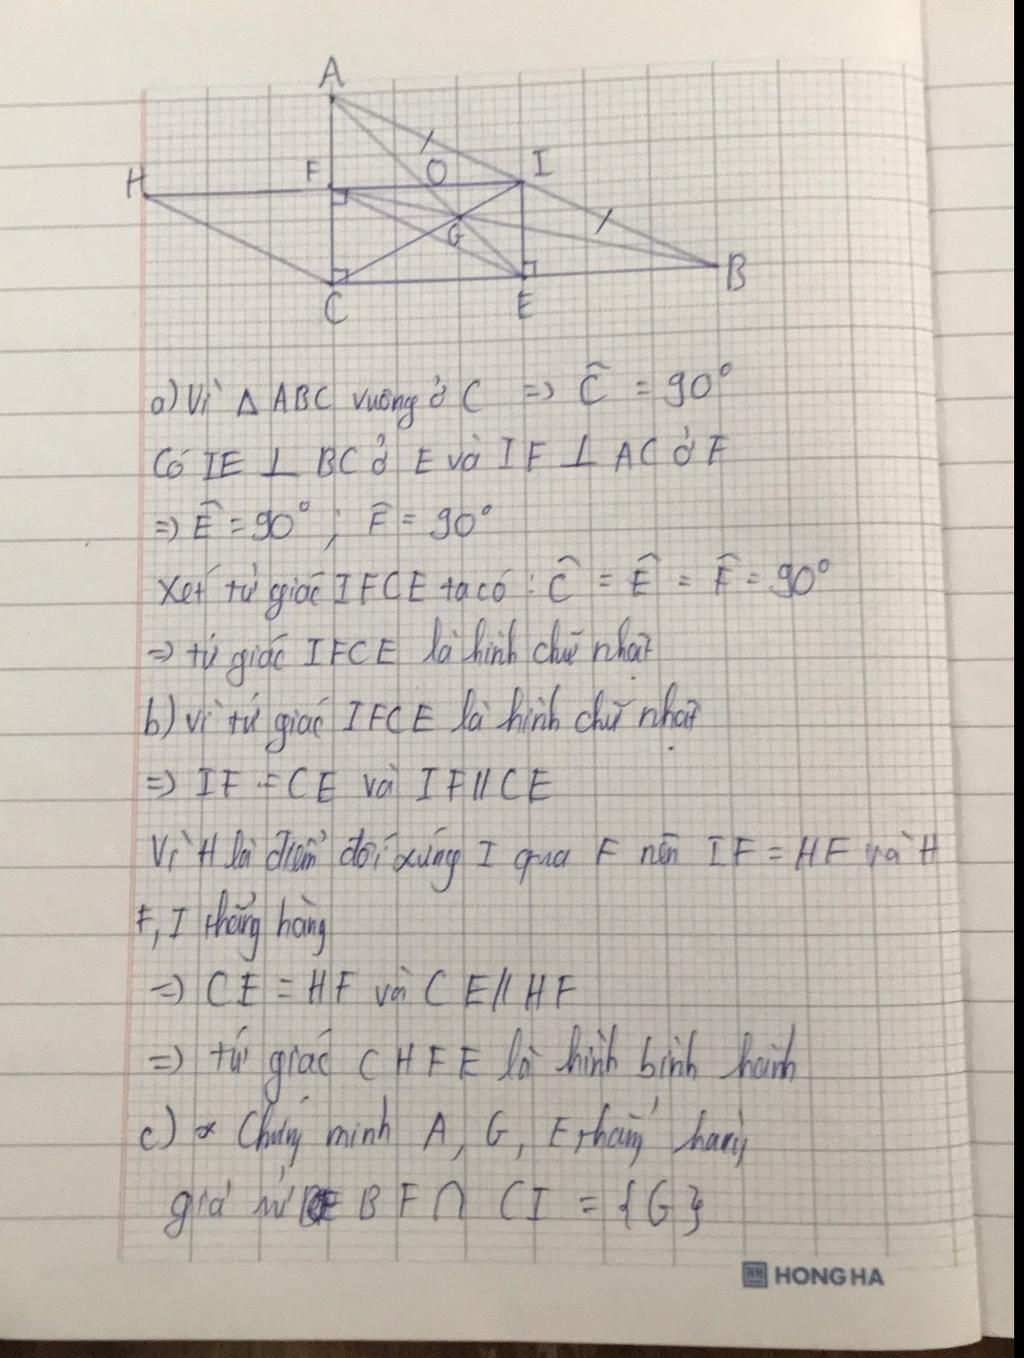 A
H F O I
G
C E B
a) Vì Δ ABC vuông ở C => Ĉ = 90°
Có IE ⊥ BC ở E và IF ⊥ AC ở F
=> Ê = 90° ; F̂ = 90°
Xét tứ giác IFCE ta có : Ĉ = Ê = F̂ = 90°
=> tứ giác IFCE là hình chữ nhật
b) Vì tứ giác IFCE là hình chữ nhật
=> IF = CE và IF // CE
Vì H là điểm đối xứng I qua F nên IF = HF và H
F, I thẳng hàng
=> CE = HF và CE // HF
=> tứ giác CHFE là hình bình hành
c) * Chứng minh A, G, E thẳng hàng
giả sử BF ∩ CI = {G}
HONG HA